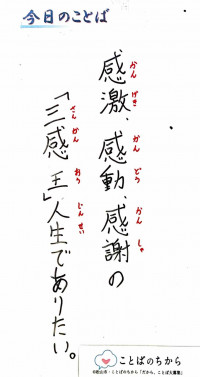 今日のことば
感激、感動、感謝の
かん げき かん どう かん しゃ
「三感王」人生でありたい。
さん かん おう じん せい
ことばのちから